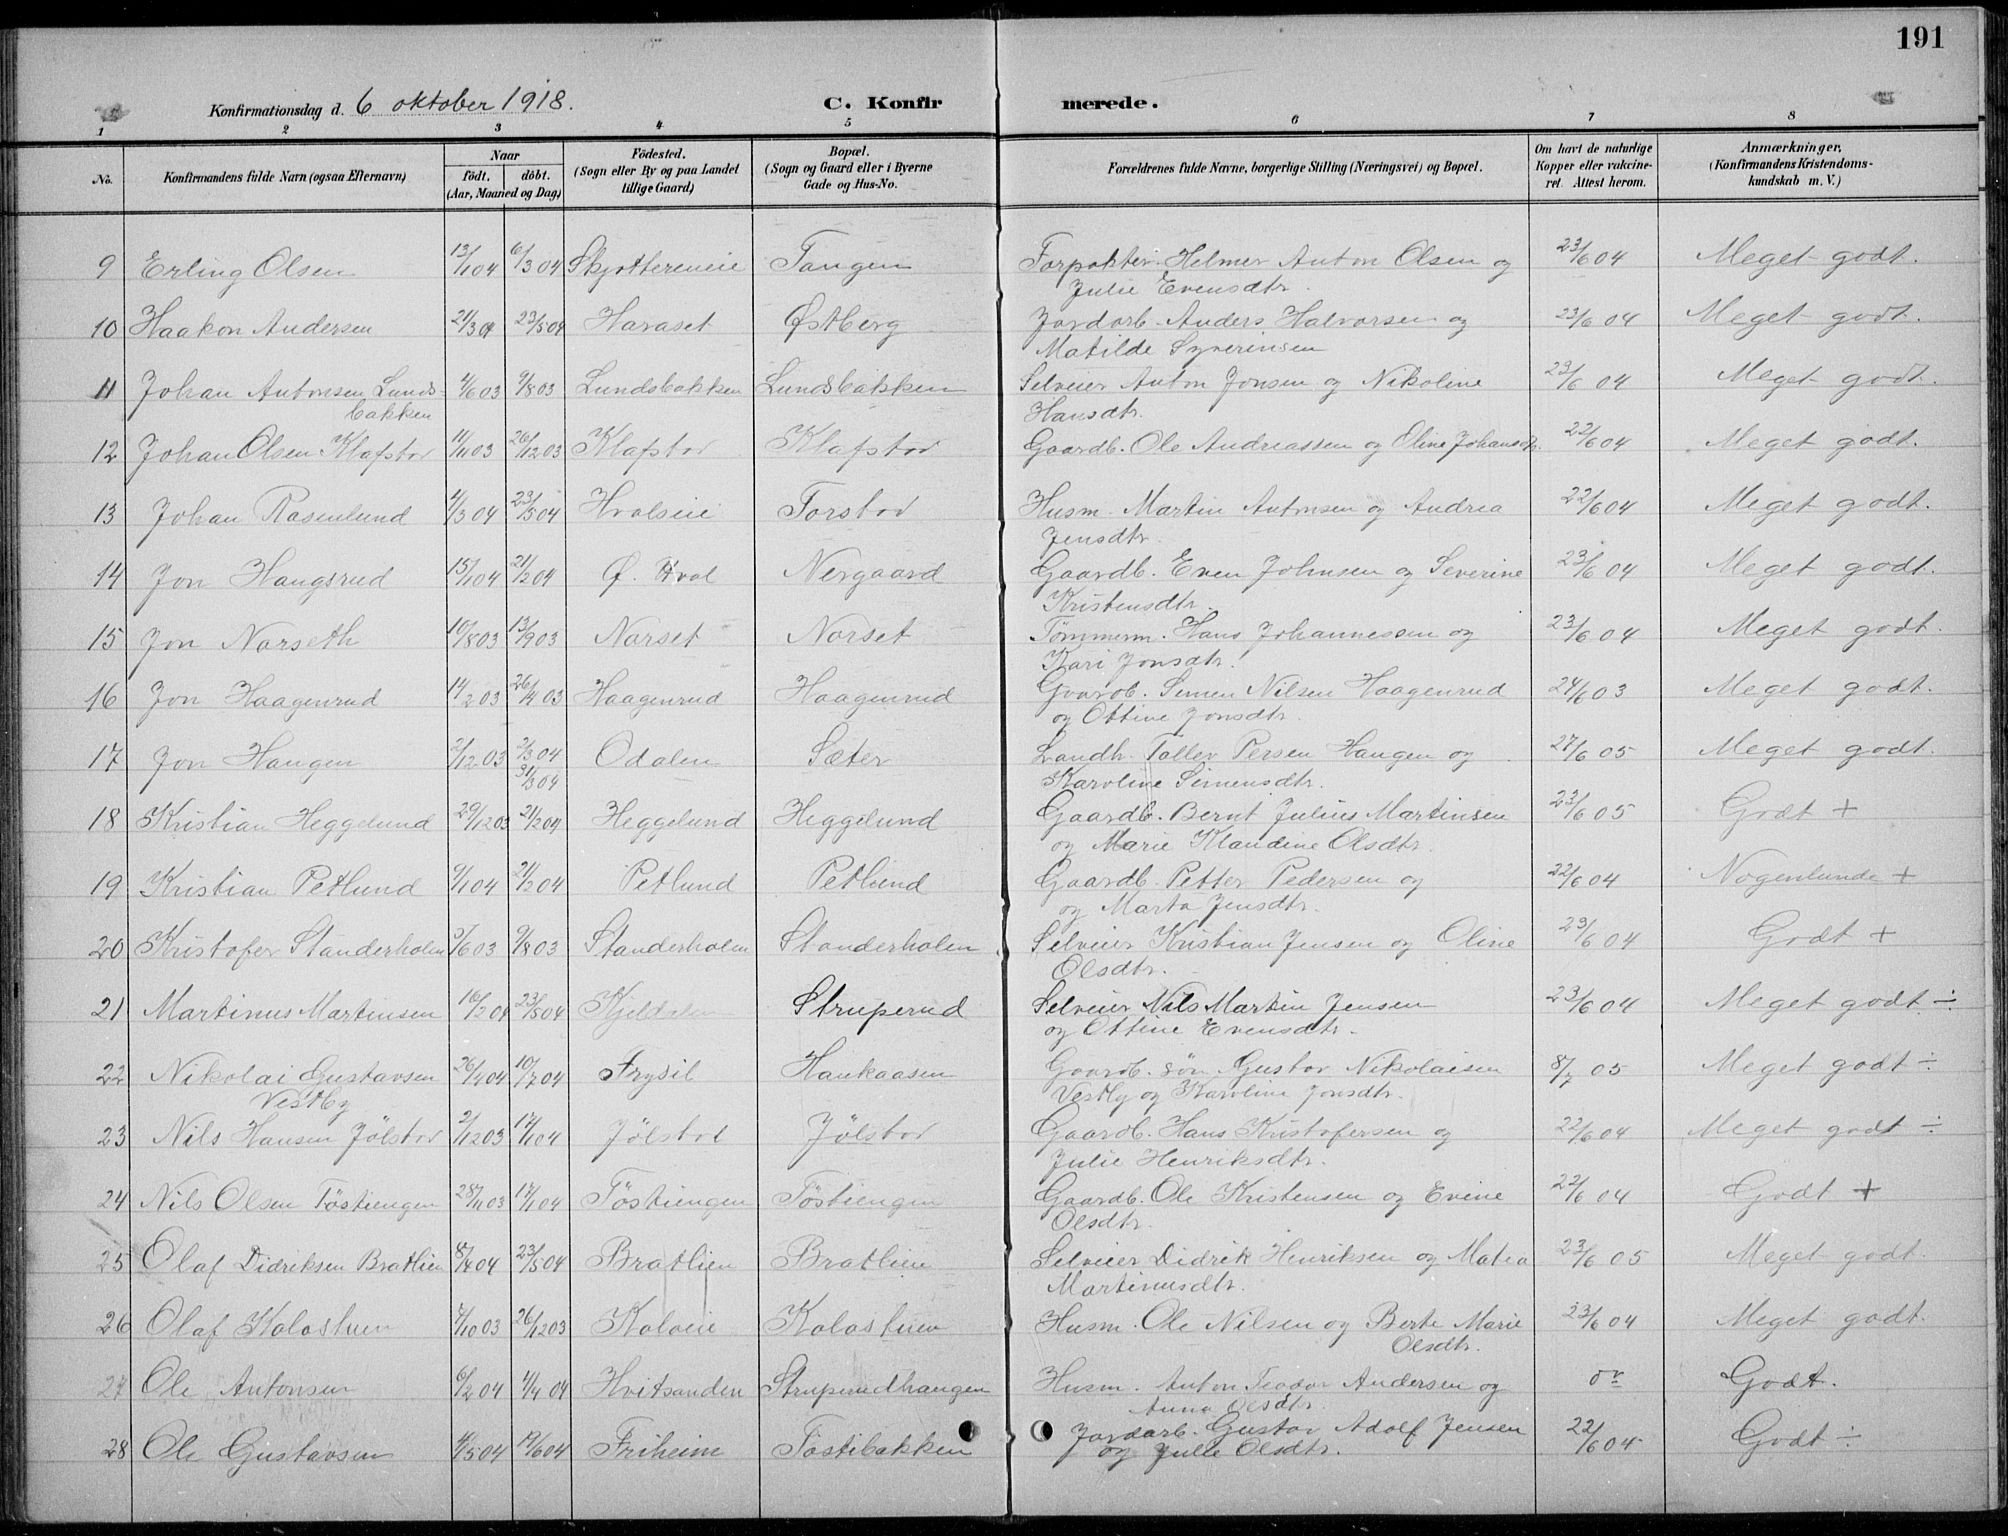 191
Konfirmationsdag d. 6 oktober 1918.
C. Konfirmerede.
1 2 3 4 5 6 7 8
No.
Konfirmandens fulde Navn (ogsaa Efternavn)
Naar
født. døbt.
(Aar, Maaned og Dag)
Fødested.
(Sogn eller By og paa Landet
tillige Gaard)
Bopæl.
(Sogn og Gaard eller i Byerne
Gade og Hus-No.
Forældrenes fulde Navne, borgerlige Stilling (Næringsvei) og Bopæl.
Om havt de naturlige
Kopper eller vakcine-
ret. Attest herom.
Anmærkninger,
(Konfirmandens Kristendoms-
kundskab m. V.)
9 Erling Olsen 13/1 04 6/3 04 Skjøttereneie Tangen Forpakter Helmer Anton Olsen og 23/6 04 Meget godt.
Julie Evensdtr.
10 Haakon Andersen 21/3 04 23/5 04 Haraset Østberg Jordarb. Anders Halvorsen og 23/6 04 Meget godt.
Matilde Syverinsen
11 Johan Antonsen Lunds- 4/6 03 9/8 03 Lundsbakken Lundsbakken Selveier Anton Jonsen og Nikoline 23/6 04 Meget godt.
bakken Hansdtr.
12 Johan Olsen Klafstor 11/11 03 26/12 03 Klafstor Klafstor Gaardb. Ole Andreassen og Eline Johansdtr. 22/6 04 Meget godt.
13 Johan Rasenlund 4/3 04 23/5 04 Hvalseie Torstov Husm. Martin Antonsen og Andrea 22/6 04 Meget godt.
Jensdtr.
14 Jon Haugsrud 15/1 04 21/2 04 Ø. Hval Nergaard Gaardb. Even Johnsen og Severine 23/6 04 Meget godt.
Kristensdtr.
15 Jon Narseth 10/8 03 13/9 03 Narset Narset Tømmerm. Hans Johannessen og 23/6 04 Meget godt.
Kari Jonsdtr.
16 Jon Haagenrud 14/2 03 26/4 03 Haagenrud Haagenrud Gaardb. Simen Nilsen Haagenrud 24/6 03 Meget godt.
og Ottine Jonsdtr.
17 Jon Haugen 2/12 03 2/3 04 Odalen Sæter Landh. Tollev Persen Haugen og 27/6 05 Meget godt.
31/3 04 Karoline Simensdtr.
18 Kristian Heggelund 29/12 03 21/2 04 Heggelund Heggelund Gaardb. Bernt Julius Martinsen 23/6 05 Godt +
og Marie Klaudine Olsdtr.
19 Kristian Petlund 9/1 04 21/2 04 Petlund Petlund Gaardb. Petter Pedersen og 22/6 04 Nogenlunde +
og Marta Jensdtr.
20 Kristofer Standerholen 9/6 03 9/8 03 Standerholen Standerholen Selveier Kristian Jensen og Oline 23/6 04 Godt +
Olsdtr.
21 Martinus Martinsen 16/2 04 23/5 04 Kjeldalen Struperud Selveier Nils Martin Jensen 23/6 04 Meget godt ÷
og Ottine Evensdtr.
22 Nikolai Gustavsen 26/4 04 10/7 04 Trysil Haukaasen Gaardb. søn Gustav Nikolaisen 8/7 05 Meget godt ÷
Vestby Vestby og Karoline Jonsdtr.
23 Nils Hansen Jølstov 2/12 03 17/1 04 Jølstov Jølstov Gaardb. Hans Kristofersen og 22/6 04 Meget godt ÷
Julie Henriksdtr.
24 Nils Olsen Tøstiengen 28/11 03 17/1 04 Tøstiengen Tøstiengen Gaardb. Ole Kristensen og Evine 22/6 04 Godt +
Olsdtr.
25 Olaf Didriksen Bratlien 8/4 04 23/5 04 Bratlien Bratlien Selveier Didrik Henriksen og Matea 23/6 05 Meget godt.
Martinusdtr.
26 Olaf Kolostuen 7/10 03 26/12 03 Koloeie Kolostuen Husm. Ole Nilsen og Berte Marie 23/6 04 Meget godt.
Olsdtr.
27 Ole Antonsen 6/2 04 4/4 04 Hvitsanden Struperudhaugen Husm. Anton Teodor Andersen og do Godt.
Anna Olsdtr.
28 Ole Gustavsen 4/5 04 19/6 04 Friheim Tøstibakken Jordarb. Gustav Adolf Jensen 22/6 04 Godt ÷
og Julie Olsdtr.